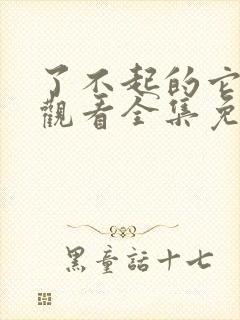 了不起的它
觀看全集免
黑童話十七